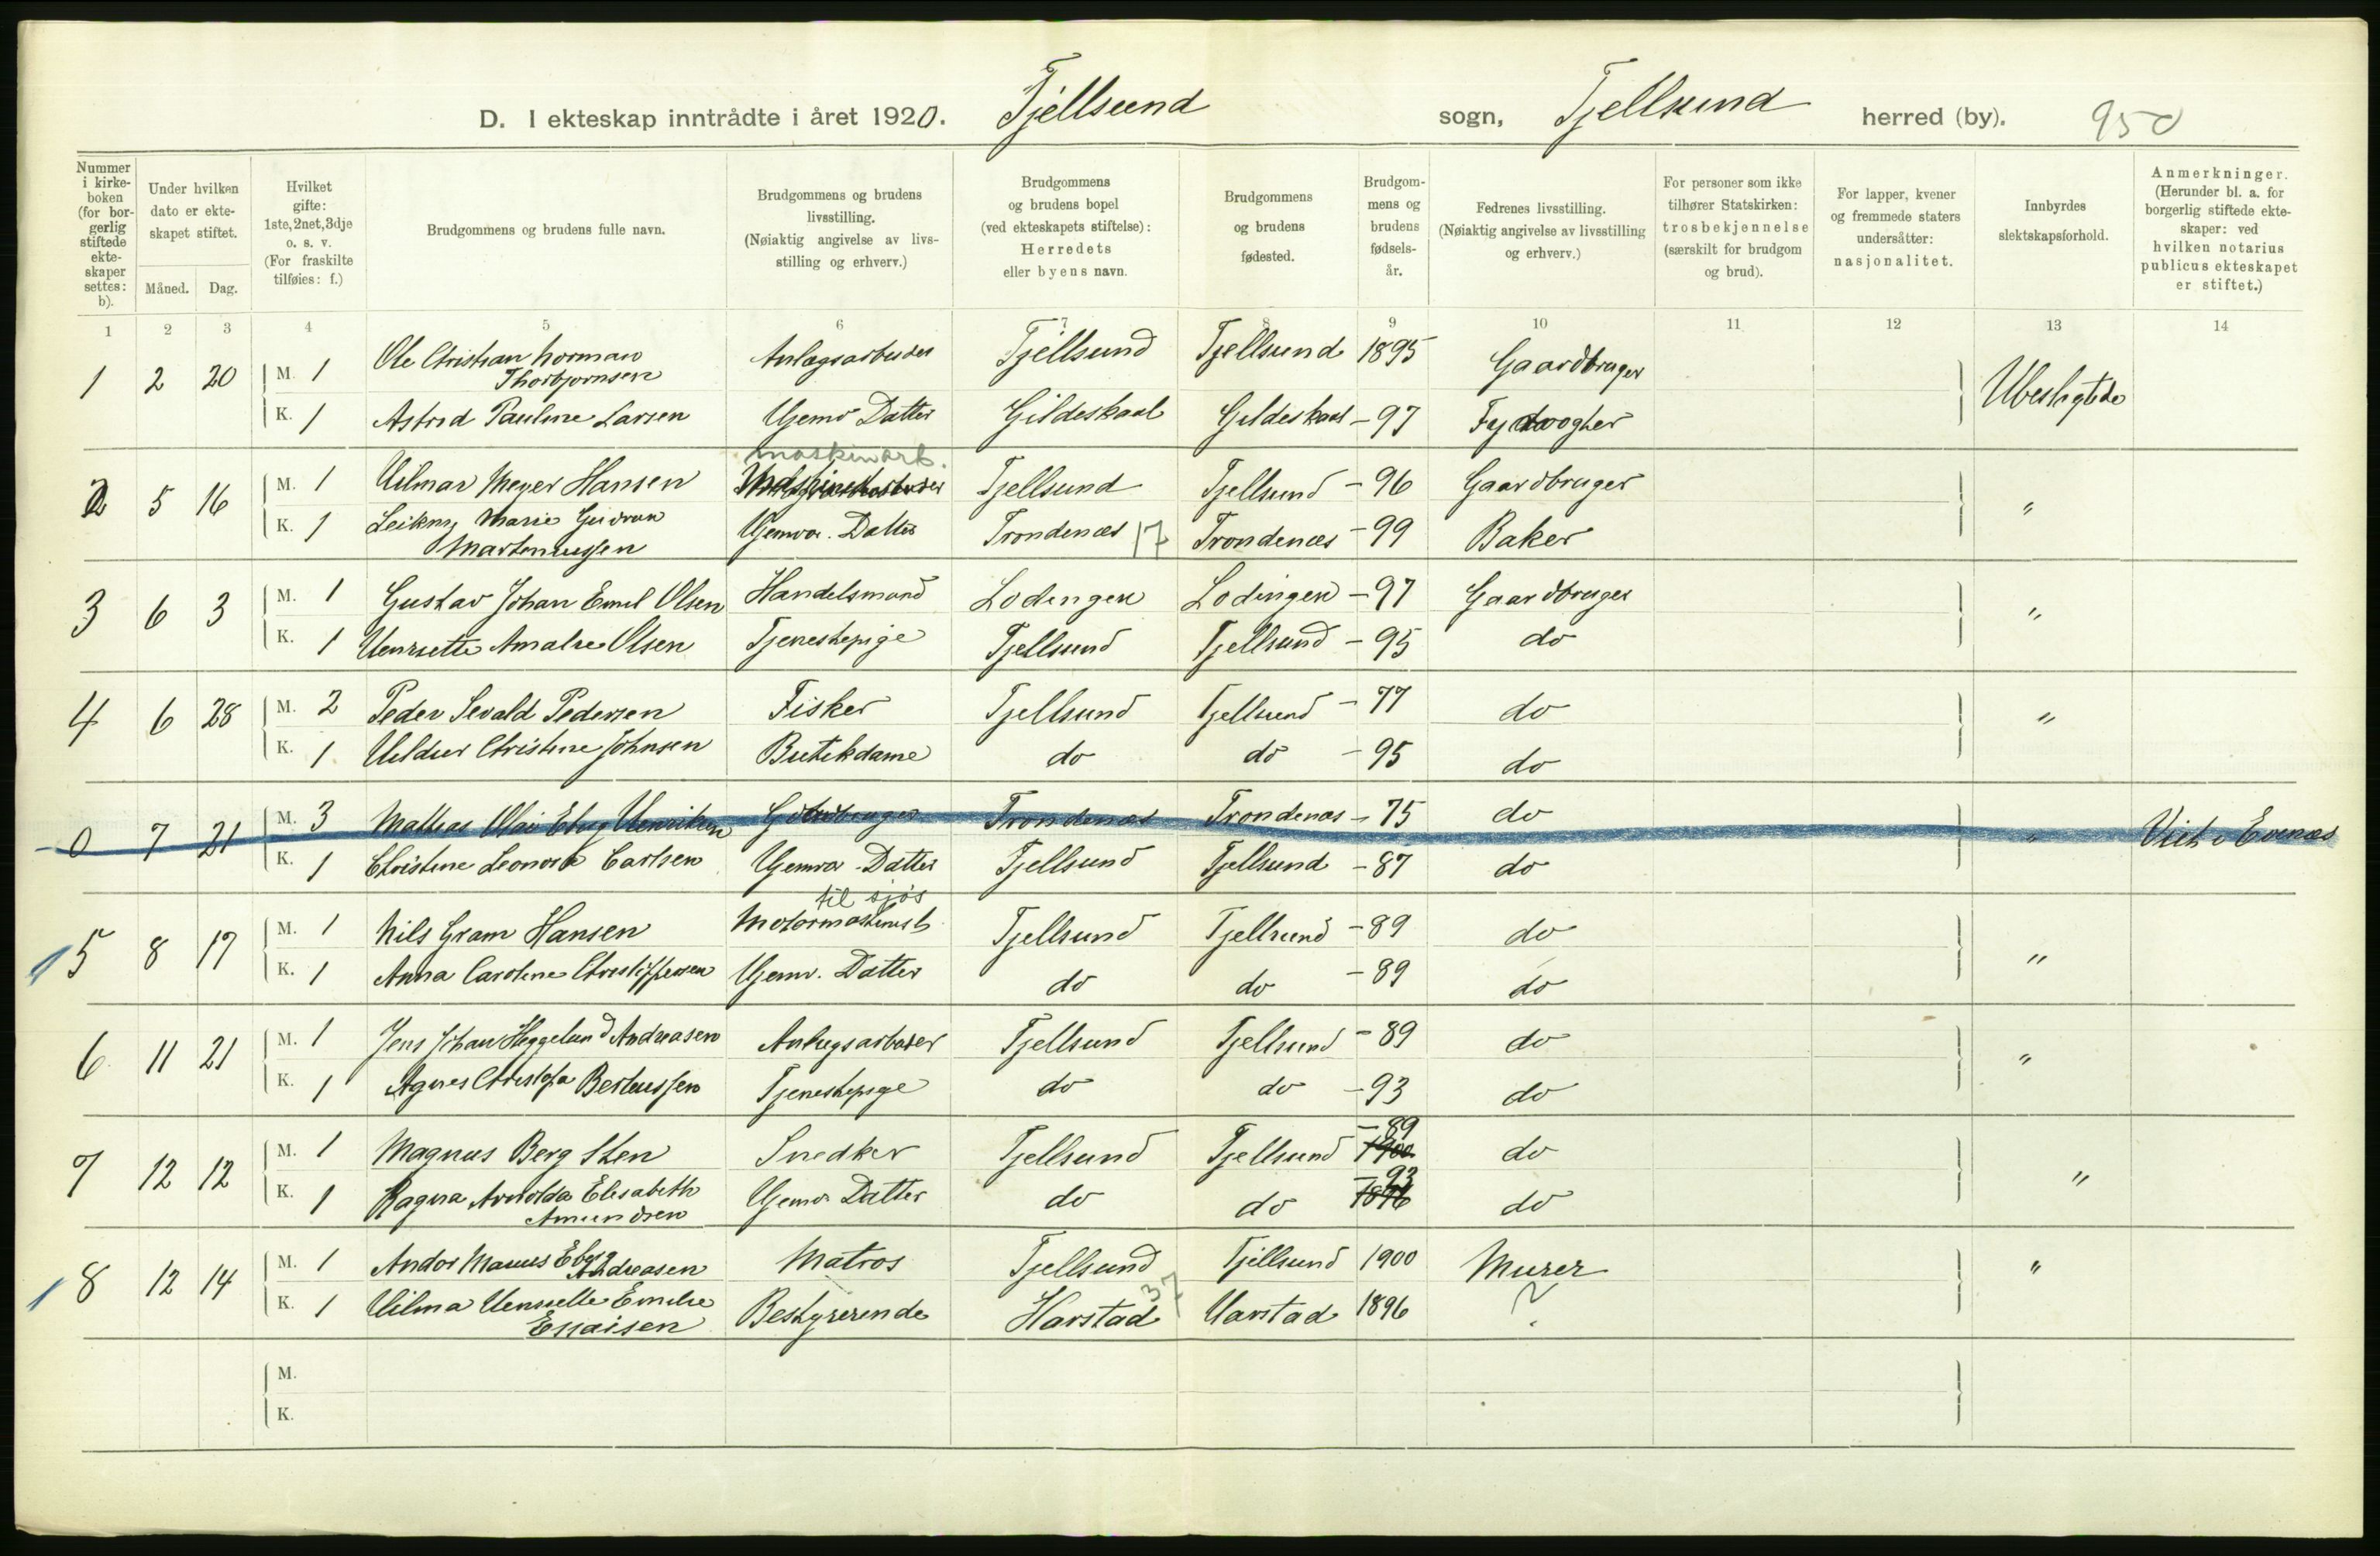 D. I ekteskap inntrådte i året 1920. Tjellsund sogn, Tjellsund herred (by). 950
Nummer i kirkeboken (for borgerlig stiftede ekteskaper settes: b).
Under hvilken dato er ekteskapet stiftet.
Måned. Dag.
Hvilket gifte: 1ste, 2net, 3dje o. s. v. (For fraskilte tilføies: f.)
Brudgommens og brudens fulle navn.
Brudgommens og brudens livsstilling. (Nøiaktig angivelse av livsstilling og erhverv.)
Brudgommens og brudens bopel (ved ekteskapets stiftelse): Herredets eller byens navn.
Brudgommens og brudens fødested.
Brudgommens og brudens fødselsår.
Fedrenes livsstilling. (Nøiaktig angivelse av livsstilling og erhverv.)
For personer som ikke tilhører Statskirken: trosbekjennelse (særskilt for brudgom og brud).
For lapper, kvener og fremmede staters undersåtter: nasjonalitet.
Innbyrdes slektskapsforhold.
Anmerkninger. (Herunder bl. a. for borgerlig stiftede ekteskaper: ved hvilken notarius publicus ekteskapet er stiftet.)
1 2 3 4 5 6 7 8 9 10 11 12 13 14
1 2 20 M. 1 Ole Christian Norman Thorbjornsen Anlægsarbeider Tjellsund Tjellsund 1895 Gaardbruger Ubeslegtede
K. 1 Astrid Pauline Larsen Hjemv Datter Gildeskaal Gildeskaal -97
maskinarb.
2 5 16 M. 1 Hilmar Meyer Hansen Tjellsund Tjellsund -96 Gaardbruger "
K. 1 Leikny Marie Gudrun Martenussen Hjemva. Datter Trondenæs 17 Trondenæs -99 Baker
3 6 3 M. 1 Gustav Johan Emil Olsen Handelsmand Lodingen Lodingen -97 Gaardbruger "
K. 1 Henriette Amalie Olsen Tjenestepige Tjellsund Tjellsund -95 do
4 6 28 M. 2 Peder Sevald Pedersen Fisker Tjellsund Tjellsund -77 do "
K. 1 Hildur Christine Johnsen Butikdame do do -95 do
0 7 21 M. 3 Mathias Olai Ebug Henriksen Gardbruger Trondenæs Trondenæs -75 do " Viet i Evenæs
K. 1 Christine Leonora Carlsen Hjemva. Datter Tjellsund Tjellsund -87 do
til sjøs
5 8 17 M. 1 Nils Gram Hansen Motormaskinist Tjellsund Tjellsund -89 do "
K. 1 Anna Caroline Christiffersen Hjemv. Datter do do -89 do
6 11 21 M. 1 Jens Johan Heggelund Andreasen Anlægsarbeider Tjellsund Tjellsund -89 do "
K. 1 Agnes Christofa Berteussen Tjenestepige do do -93 do
-89
7 12 12 M. 1 Magnus Berg Sten Snedker Tjellsund Tjellsund 1900 do "
-93
K. 1 Ragna Arnolda Elisabeth Amundsen Hjemv Datter do do 1896 do
8 12 14 M. 1 Andor Marius Eberg Andreasen Matros Tjellsund Tjellsund 1900 Murer "
K. 1 Hilma Henriette Emilie Essaisen Bestyrerinde Harstad 37 Harstad 1896 ?
M.
K.